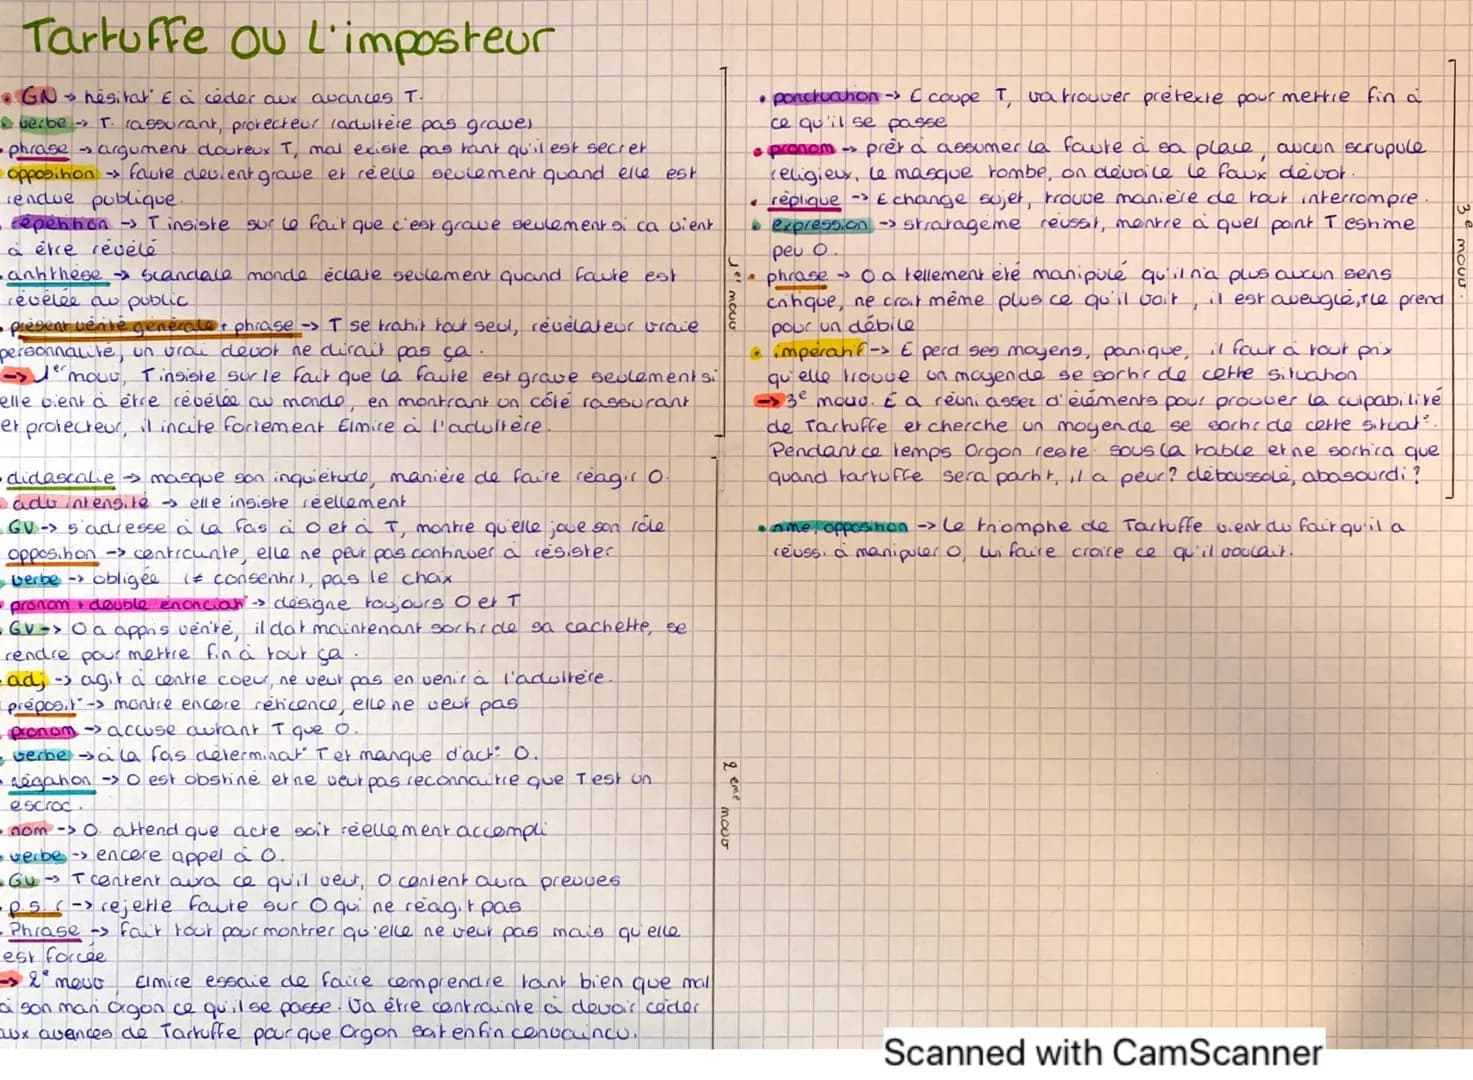 Tartuffe ou l'imposteur
• GN → hésitat° E à céder aux avances T.
• verbe → T. rassurant, protecteur (adultère pas grave)
• phrase → argument douteux T, mal existe pas tant qu'il est secret
opposition → faute devient grave et réelle seulement quand elle est
rendue publique.
répétition → T insiste sur le fait que c'est grave seulement si ça vient
à être révélé
• antithèse → scandale monde éclate seulement quand faute est
révélée au public
• présent vérité générale + phrase → T se trahit tout seul, révélateur vraie
personnalité, un vrai dévot ne dirait pas ça.
→ 1er mouv, T insiste sur le fait que la faute est grave seulement si
elle vient à être révélée au monde, en montrant un côté rassurant
et protecteur, il incite fortement Elmire à l'adultère.
1er mouv
• didascalie → masque son inquiétude, manière de faire réagir O.
• adv intensité → elle insiste réellement
GV → s'adresse à la fois à O et à T, montre qu'elle joue son rôle
opposition → contrainte, elle ne peut pas continuer à résister
• verbe → obligée (≠ consentir), pas le choix
• pronom + double énonciat° → désigne toujours O et T
• GV → O a appris vérité, il doit maintenant sortir de sa cachette, se
rendre pour mettre fin à tout ça.
• adj → agit à contre coeur, ne veut pas en venir à l'adultère.
préposit° → montre encore réticence, elle ne veut pas
• pronom → accuse autant T que O.
• verbe → à la fois déterminat° T et manque d'act° O.
• négation → O est obstiné et ne veut pas reconnaitre que T est un
escroc.
• nom → O. attend que acte soit réellement accompli
• verbe → encore appel à O.
• GV → T content aura ce qu'il veut, O content aura preuves
• p.s.r → rejette faute sur O qui ne réagit pas
• Phrase → fait tout pour montrer qu'elle ne veut pas mais qu'elle
est forcée
→ 2e mouv Elmire essaie de faire comprendre tant bien que mal
à son mari Orgon ce qu'il se passe. Va être contrainte à devoir céder
aux avances de Tartuffe pour que Orgon soit enfin convaincu.
2ème mouv
• ponctuation → E coupe T, va trouver prétexte pour mettre fin à
ce qu'il se passe
• pronom → prêt à assumer la faute à sa place, aucun scrupule
religieux, le masque tombe, on dévoile le faux dévot.
• réplique → E change sujet, trouve manière de tout interrompre.
• expression → stratagème réussit, montre à quel point T estime
peu O.
• phrase → O a tellement été manipulé qu'il n'a plus aucun sens
critique, ne croit même plus ce qu'il voit, il est aveuglé, T le prend
pour un débile
• impératif → E perd ses moyens, panique, il faut à tout prix
qu'elle trouve un moyen de se sortir de cette situation
→ 3e mouv. E a réuni assez d'éléments pour prouver la culpabilité
de Tartuffe et cherche un moyen de se sortir de cette situat°.
Pendant ce temps Orgon reste sous la table et ne sortira que
quand tartuffe sera parti, il a peur? déboussolé, abasourdi?
3e mouv.
• rime, opposition → Le triomphe de Tartuffe vient du fait qu'il a
réussi à manipuler O, lui faire croire ce qu'il voulait.
Scanned with CamScanner